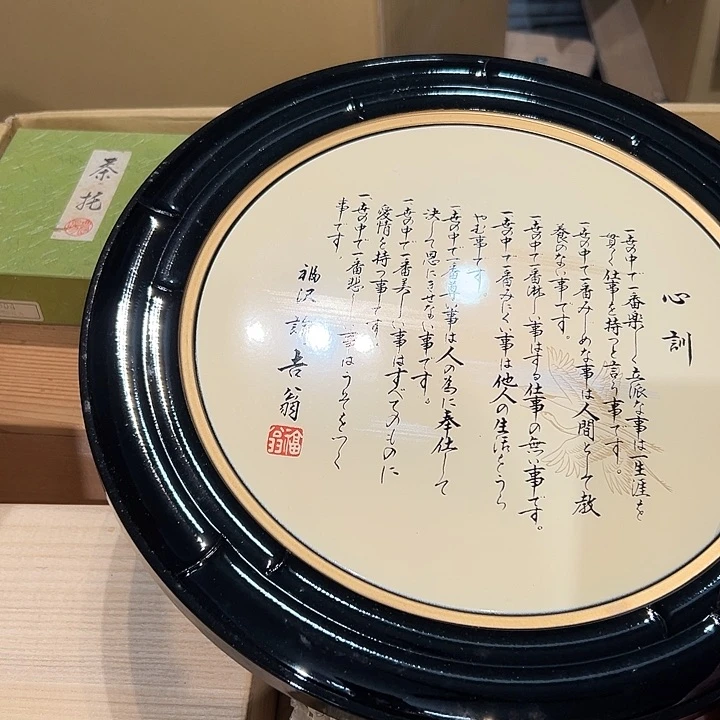 心訓
一世の中で一番楽しく立派な事は一生涯を
貫く仕事を持つと言う事です。
一世の中で一番みじめな事は人間として教
養のない事です。
一世の中で一番淋しい事はする仕事の無い事です。
一世の中で一番みにくい事は他人の生活をうら
やむ事です。
一世の中で一番尊い事は人の為に奉仕して
決して恩にきせない事です。
一世の中で一番美しい事はすべてのものに
愛情を持つ事です。
一世の中で一番悲しい事はうそをつく
事です。
福沢諭吉翁
福翁
茶托